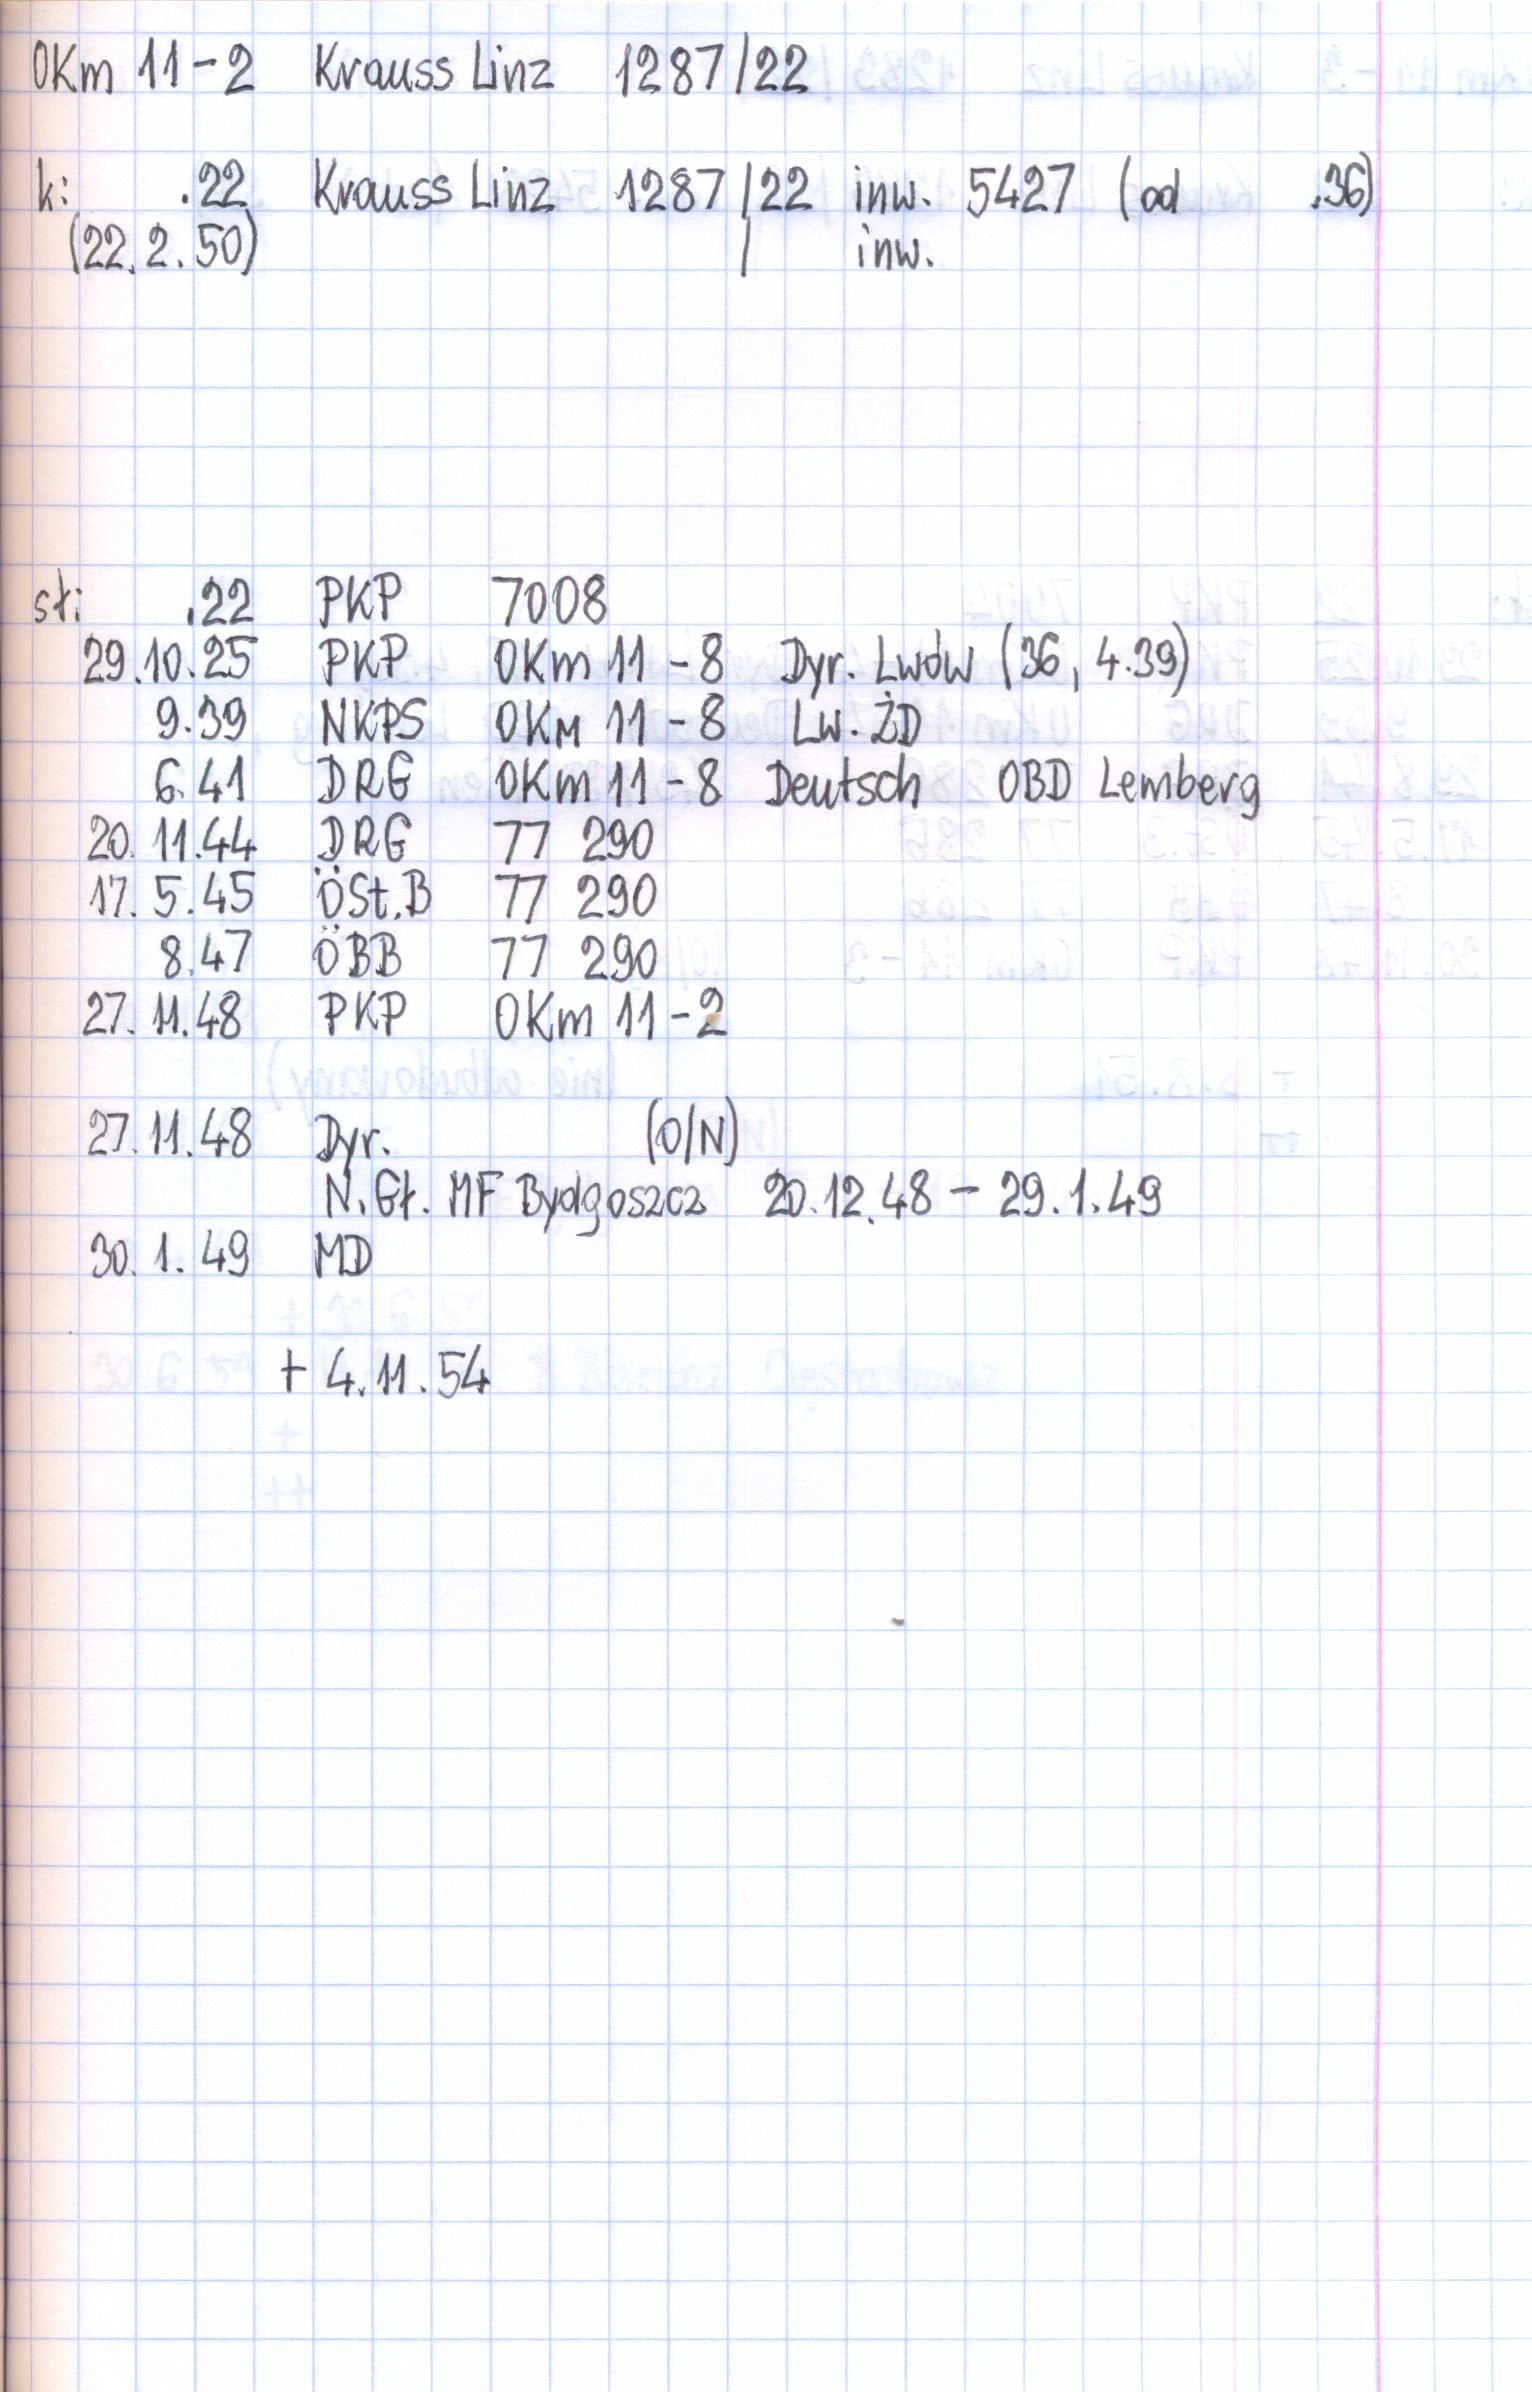 OKm 11-2 Krauss Linz 1287/22
k: .22 Krauss Linz 1287/22 inw. 5427 (od .36)
(22.2.50) / inw.
st: .22 PKP 7008
29.10.25 PKP OKm 11-8 Dyr. Lwów (36, 4.39)
9.39 NKPS OKм 11-8 Lw. ŻD
6.41 DRG OKm 11-8 Deutsch OBD Lemberg
20.11.44 DRG 77 290
17.5.45 ÖSt.B 77 290
8.47 ÖBB 77 290
27.11.48 PKP OKm 11-2
27.11.48 Dyr. (O/N)
N.Gł. MF Bydgoszcz 20.12.48 - 29.1.49
30.1.49 MD
+ 4.11.54